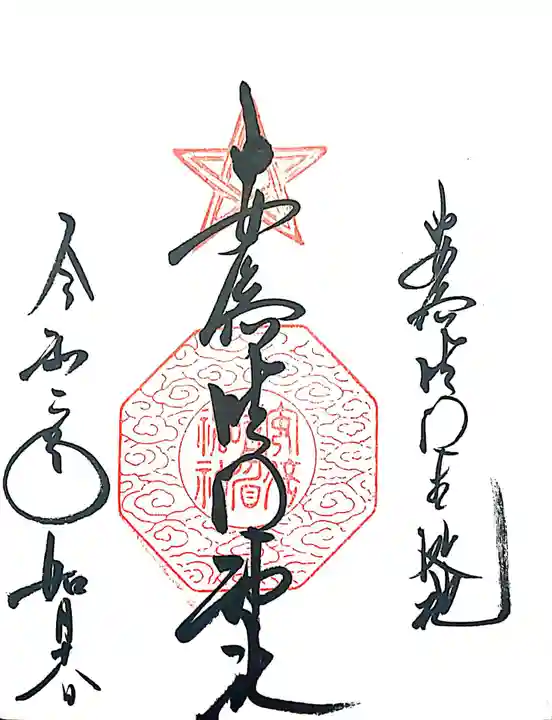 安倍晴明生誕地
安倍晴明神社
安倍晴明神社
令和二年 如月